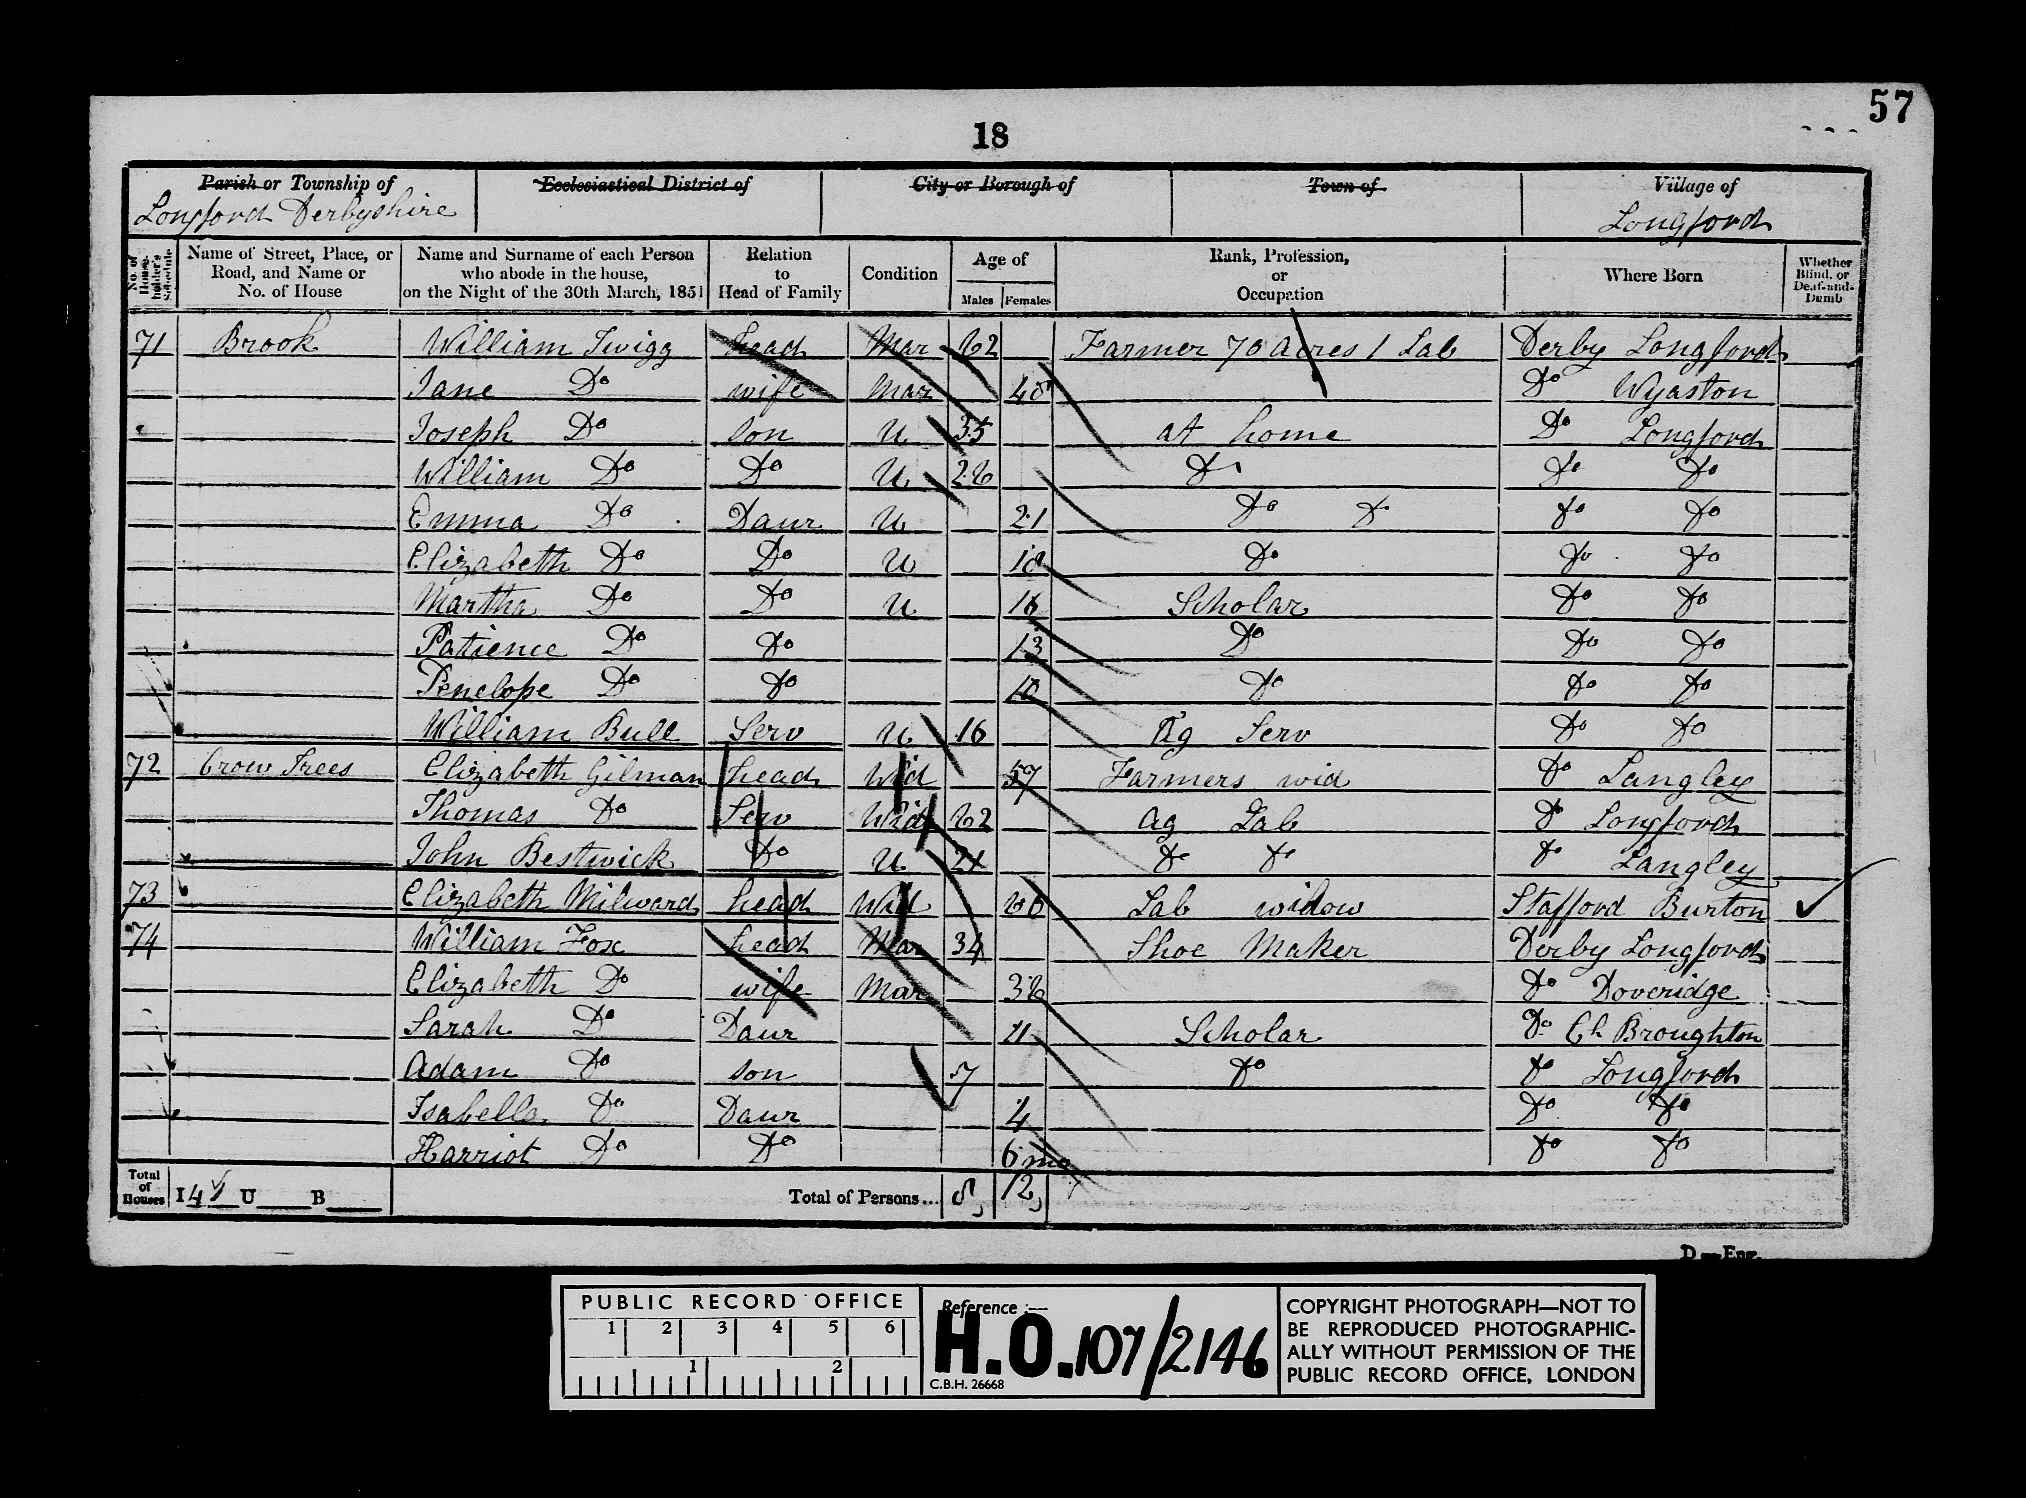 57
18
Parish or Township of Ecclesiastical District of City or Borough of Town of Village of
Longford Derbyshire Longford
No. of House-holder's Schedule Name of Street, Place, or Road, and Name or No. of House Name and Surname of each Person who abode in the house, on the Night of the 30th March, 1851 Relation to Head of Family Condition Age of Males Females Rank, Profession, or Occupation Where Born Whether Blind, or Deaf-and-Dumb
71 Brook William Twigg head Mar 62 Farmer 70 Acres 1 Lab Derby Longford
Jane Do wife Mar Do Wyaston
Joseph Do son U 35 at home Do Longford
William Do Do U 26 Do Do Do
Emma Do Daur U 21 Do Do Do Do
Elizabeth Do Do U 18 Do Do Do
Martha Do Do U 16 Scholar Do Do
Patience Do Do 13 Do Do Do
Penelope Do Do 10 Do Do Do
William Bull Serv U 16 Ag Serv Do Do
72 Crow Trees Elizabeth Gilman head Wid 57 Farmers wid Do Langley
Thomas Do Serv Wid 62 Ag Lab Do Longford
John Bestwick Do U 21 Do Do Do Langley
73 Elizabeth Milward head Wid 66 Lab widow Stafford Burton
74 William Fox head Mar 34 Shoe Maker Derby Longford
Elizabeth Do wife Mar 36 Do Doveridge
Sarah Do Daur 11 Scholar Do Ch Broughton
Adam Do son 7 Do Do Longford
Isabella Do Daur 4 Do Do
Harriot Do Do 6 mo Do Do
Total of Houses I 4 U B Total of Persons... 8 12
D—Eng.
PUBLIC RECORD OFFICE
1 2 3 4 5 6
1 2
Reference :—
H.O. 107/2146
C.B.H. 26668
COPYRIGHT PHOTOGRAPH—NOT TO
BE REPRODUCED PHOTOGRAPHIC-
ALLY WITHOUT PERMISSION OF THE
PUBLIC RECORD OFFICE, LONDON